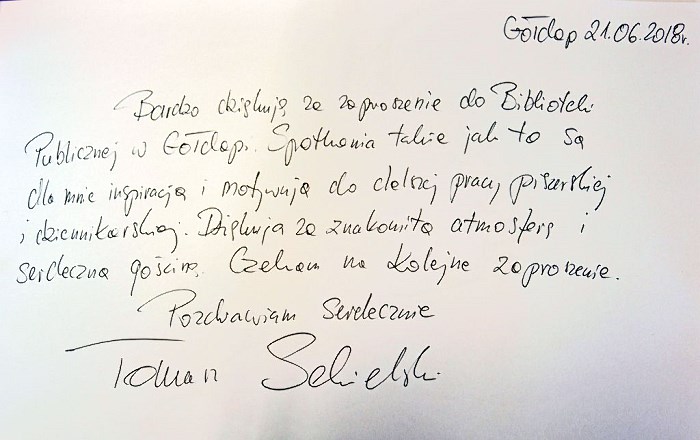 Gołdap 21.06.2018r.
Bardzo dziękuję za zaproszenie do Biblioteki
Publicznej w Gołdapi. Spotkania takie jak to są
dla mnie inspiracją i motywują do dalszej pracy pisarskiej
i dziennikarskiej. Dziękuję za znakomitą atmosferę i
serdeczną gościnę. Czekam na kolejne zaproszenie.
Pozdrawiam serdecznie
Tomasz Sekielski